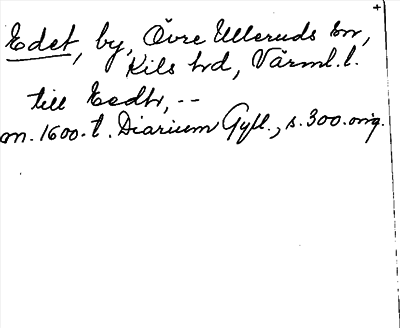 Edet, by, Övre Ulleruds sn,
Kils hd, Värml. l.
till Eedh, --
m. 1600-t. Diarium Gyll., s. 300. orig.